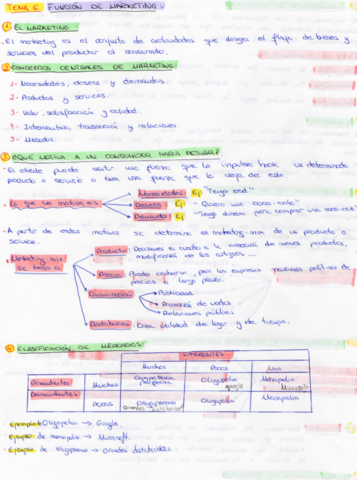 TEMA 6: FUNCIÓN DE MARKETING:
① EL MARKETING:
· El marketing es el conjunto de actividades que dirigen el flujo de bienes y
servicios del productor al consumidor.
② CONCEPTOS CENTRALES DE MARKETING:
1- Necesidades, deseos y demandas.
2- Productos y servicios.
3- Valor, satisfacción y calidad.
4- Intercambio, transacción y relaciones.
5- Mercados
③ ¿QUÉ MOTIVA A UN CONSUMIDOR PARA ACTUAR?
· El cliente puede sentir una fuerza que le impulse hacia un determinado
producto o servicio o bien una fuerza que lo aleje de este.
Necesidades: Ej "Tengo sed."
· Lo que les motiva es Deseos: Ej - "Quiero una coca-cola"
Demandas: Ej - "Tengo dinero para comprar una coca-cola"
· A partir de estos motivos se determina el marketing mix de un producto o
servicio.
Producto: Decisiones en cuanto a la creación de nuevos productos,
modificación de los antiguos ...
· Marketing mix
se basa en
Precio: políticas de
precios a largo plazo.
Comunicación: Publicidad
Promoción de ventas
Relaciones públicas
Distribución: Crea utilidad de lugar y de tiempo.
④ CLASIFICACIÓN DE MERCADOS:
OFERENTES
Muchos Pocos Uno
Demandantes Muchos Competencia perfecta Oligopolio Google Monopolio Microsoft
Demandantes Pocos Oligopsonio Oligopolio Monopolio
· Ejemplo de Oligopolio → Google.
· Ejemplo de monopolio → Microsoft.
· Ejemplo de oligopsonio → Grandes distribuidores.